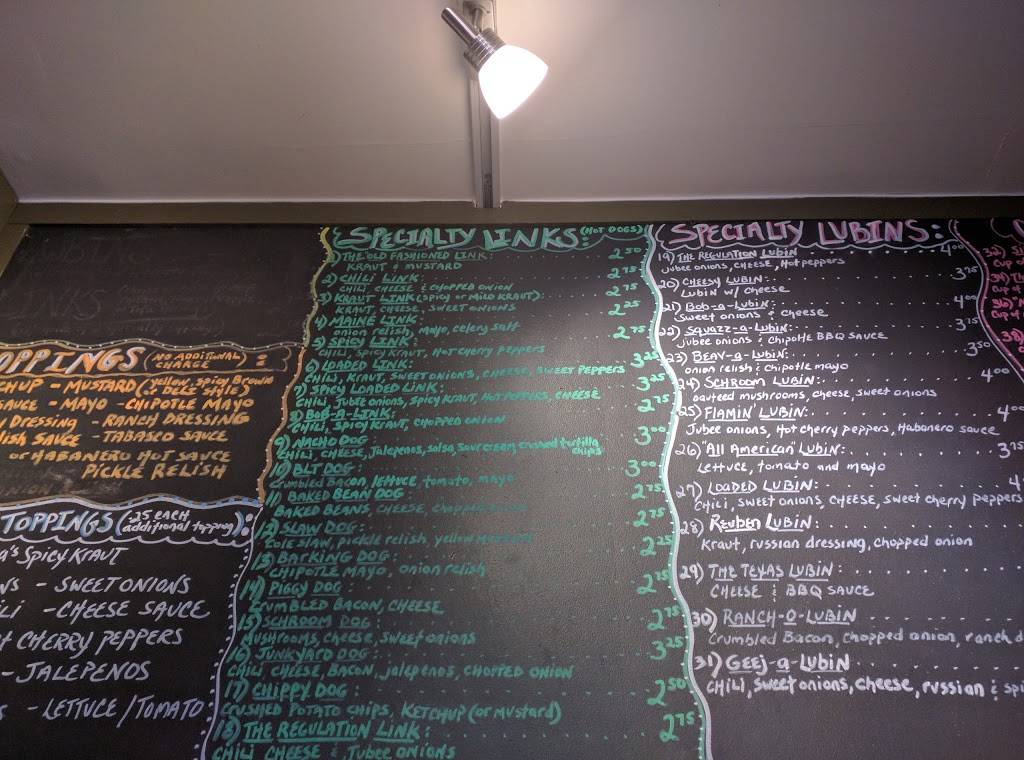 TOPPINGS (NO ADDITIONAL CHARGE):
- MUSTARD (yellow, spicy Brown
SAUCE - MAYO - CHIPOTLE MAYO
DRESSING - RANCH DRESSING
SAUCE - TABASCO SAUCE
or HABANERO HOT SAUCE
PICKLE RELISH
TOPPINGS (.25 EACH additional topping):
SPICY KRAUT
- SWEET ONIONS
- CHEESE SAUCE
CHERRY PEPPERS
- JALEPENOS
- LETTUCE/TOMATO
SPECIALTY LINKS (HOT DOGS):
1) THE OLD FASHIONED LINK: 2.50
KRAUT & MUSTARD
2) CHILI LINK: 2.75
CHILI CHEESE & CHOPPED ONION
3) KRAUT LINK (SPICY or MILD KRAUT): 2.75
KRAUT, CHEESE, SWEET ONIONS
4) MAINE LINK: 2.25
onion relish, mayo, celery salt
5) SPICY LINK: 2.75
CHILI, SPICY KRAUT, HOT CHERRY PEPPERS
6) LOADED LINK: 3.25
CHILI, KRAUT, SWEET ONIONS, CHEESE, SWEET PEPPERS
7) SPICY LOADED LINK: 3.25
CHILI, JUBEE ONIONS, SPICY KRAUT, HOT PEPPERS, CHEESE
8) BOB-A-LINK: 2.75
CHILI, SPICY KRAUT, CHOPPED ONION
9) NACHO DOG: 3.00
CHILI, CHEESE, Jalepenos, salsa, sour cream, crushed tortilla chips
10) BLT DOG: 3.00
Crumbled Bacon, LETTUCE, tomato, mayo
11) BAKED BEAN DOG: 2.75
BAKED BEANS, CHEESE, CHOPPED ONION
12) SLAW DOG: 2.75
Cole slaw, pickle relish, yellow mustard
13) BARKING DOG: 2.25
CHIPOTLE MAYO, ONION RELISH
14) PIGGY DOG: 2.75
Crumbled Bacon, CHEESE
15) SCHROOM DOG: 2.75
MUSHROOMS, CHEESE, SWEET ONIONS
16) JUNKYARD DOG: 3.25
CHILI CHEESE, BACON, jalepenos, CHOPPED ONION
17) CHIPPY DOG: 2.50
CRUSHED POTATO CHIPS, KETCHUP (or MUSTARD)
18) THE REGULATION LINK: 2.75
CHILI CHEESE & JUBEE ONIONS
SPECIALTY LUBINS:
19) THE REGULATION LUBIN 4.00
Jubee onions, CHEESE, Hot peppers
20) CHEESY LUBIN: 3.75
LUBIN w/ CHEESE
21) BOB-a-LUBIN: 4.00
Sweet onions & cheese
22) SQUAZZ-a-LUBIN: 3.75
Jubee onions & CHIPOTLE BBQ SAUCE
23) BEAV-a-LUBIN: 3.50
onion relish & chipotle mayo
24) SCHROOM LUBIN: 4.00
Sauteed mushrooms, cheese, sweet onions
25) FLAMIN' LUBIN:
Jubee onions, Hot cherry peppers, Habanero sauce
26) "All American" LUBIN:
Lettuce, tomato and mayo
27) LOADED LUBIN:
CHILI, SWEET ONIONS, CHEESE, SWEET CHERRY PEPPERS
28) REUBEN LUBIN:
Kraut, russian dressing, chopped onion
29) THE TEXAS LUBIN:
CHEESE & BBQ SAUCE
30) RANCH-O-LUBIN
Crumbled Bacon, chopped onion, ranch
31) GEEJ-a-LUBIN
CHILI, sweet onions, cheese, russian &
32)
Cup of